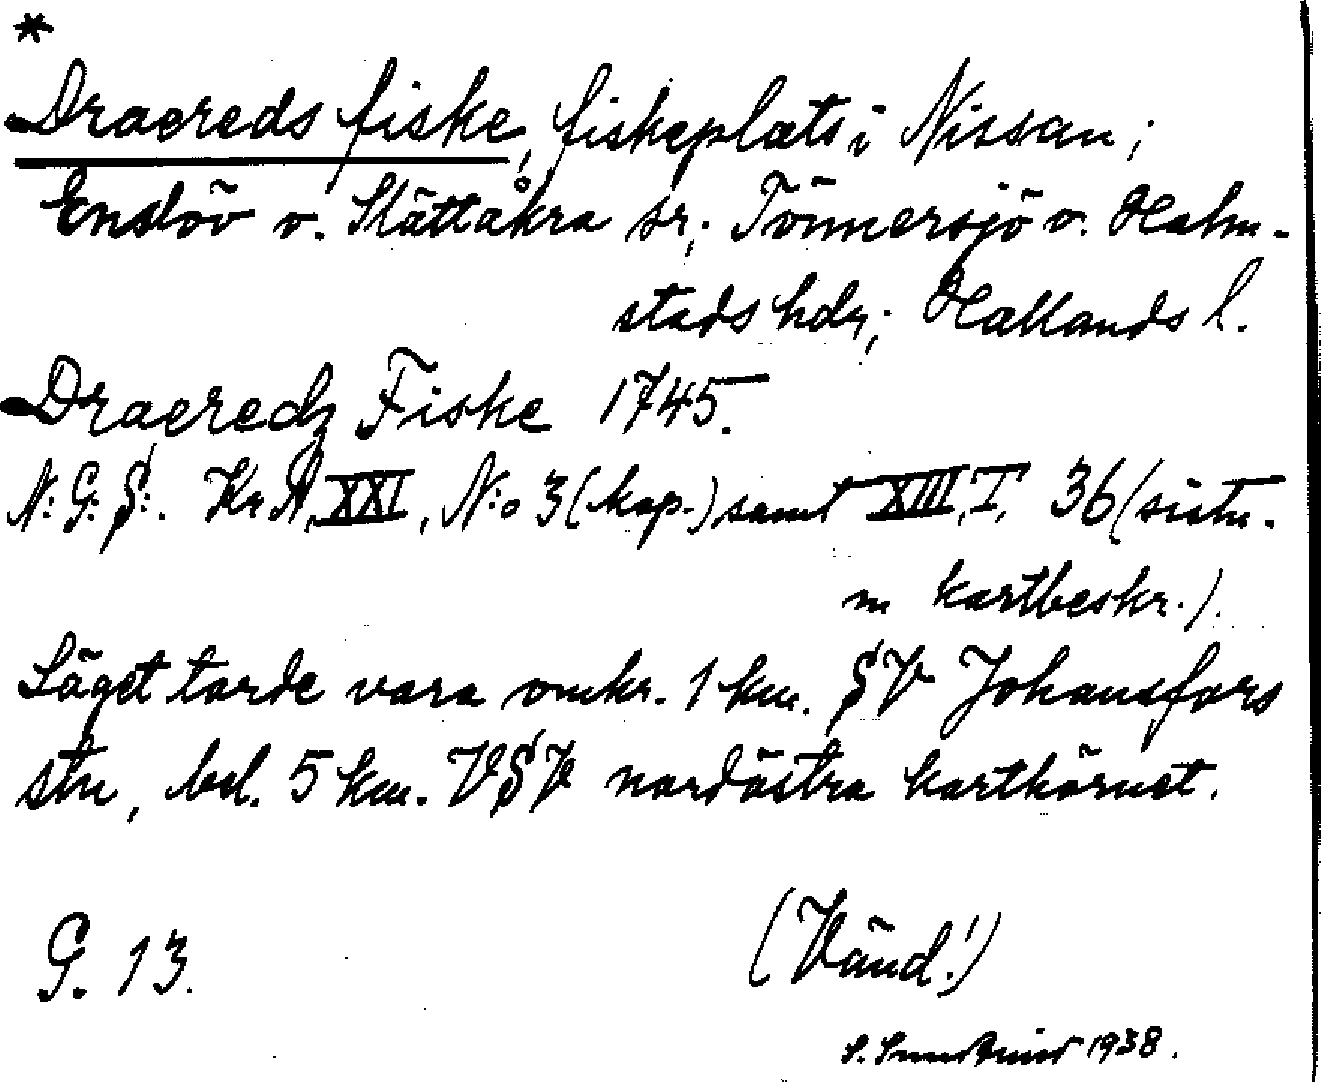 *
Draereds fiske, fiskeplats i Nissan;
Enslöv o. Slättåkra sr; Tönnersjö o. Halm-
stads hdr; Hallands l.
Draeredz Fiske 1745.
N: G: S:. Kr A, XXI, N:o 3 (kop.) samt XIII, I, 36 (sistn.
m kartbeskr.).
Läget torde vara omkr. 1 km. SV Johansfors
stn, bel. 5 km. VSV nordöstra karthörnet.
G. 13. (Vänd!)
1938.